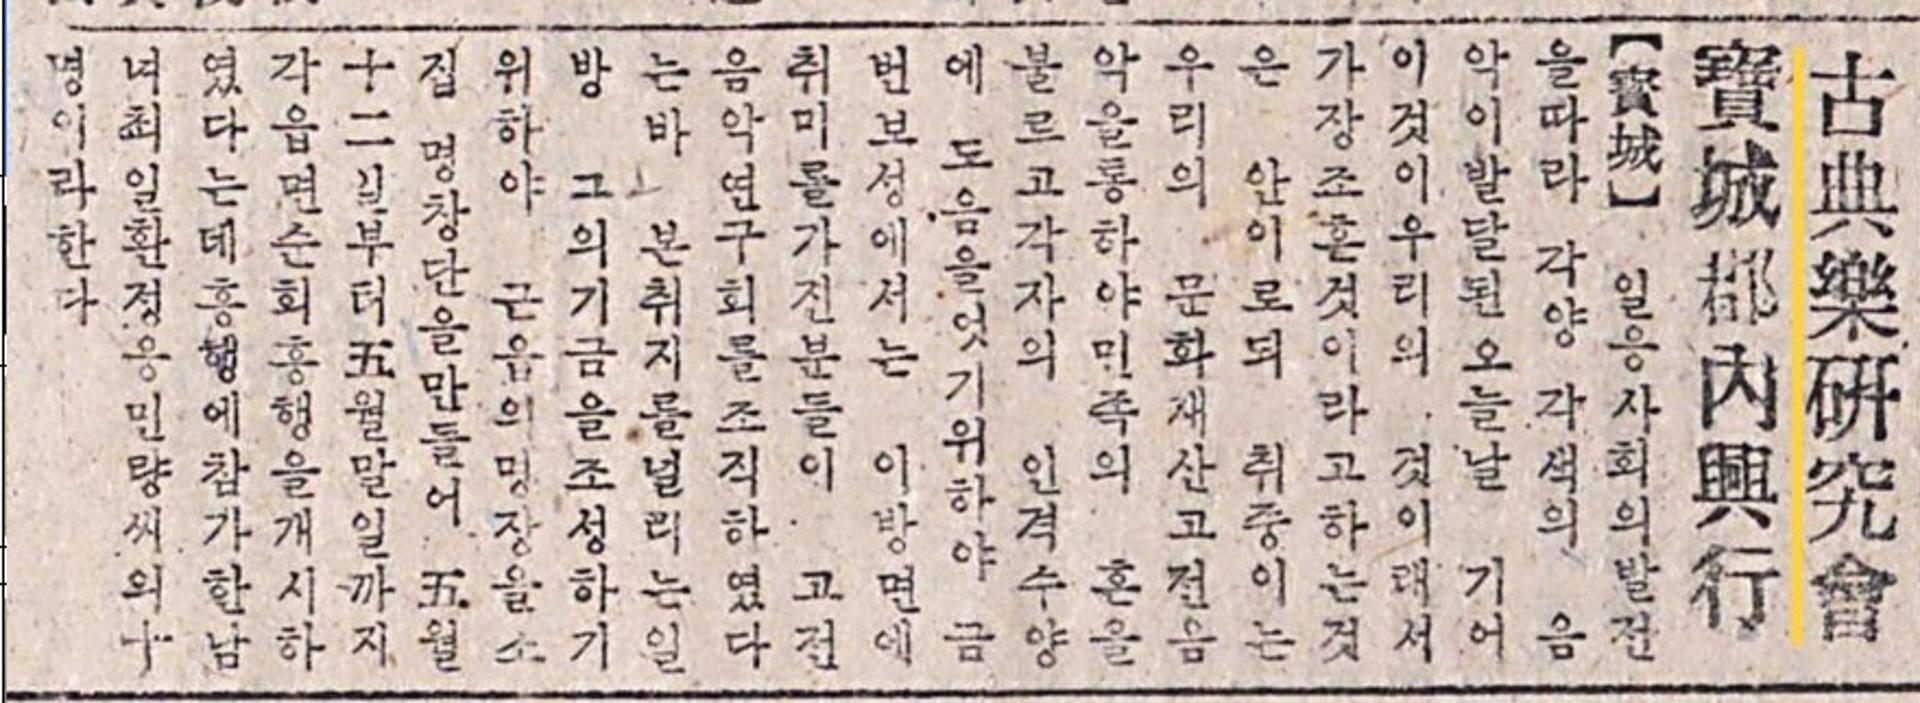 古典樂硏究會
寶城郡內興行
【寶城】 일응사회의발전
을따라 각양 각색의 음
악이발달된오늘날 기어
이것이우리의 것이래서
가장조혼것이라고하는것
은 안이로되 취중이는
우리의 문화재산고전음
악을통하야민족의 혼을
불르고각자의 인격수양
에 도음을엇기위하야 금
번보성에서는 이방면에
취미를가진분들이 고전
음악연구회를조직하였다
는바 본취지를널리는일
방 그의기금을조성하기
위하야 근읍의명장을소
집 명창단을만들어 五월
十二일부터五월말일까지
각읍면순회흥행을개시하
였다는데흥행에참가한남
녀최일환정응민량씨의十
명이라한다